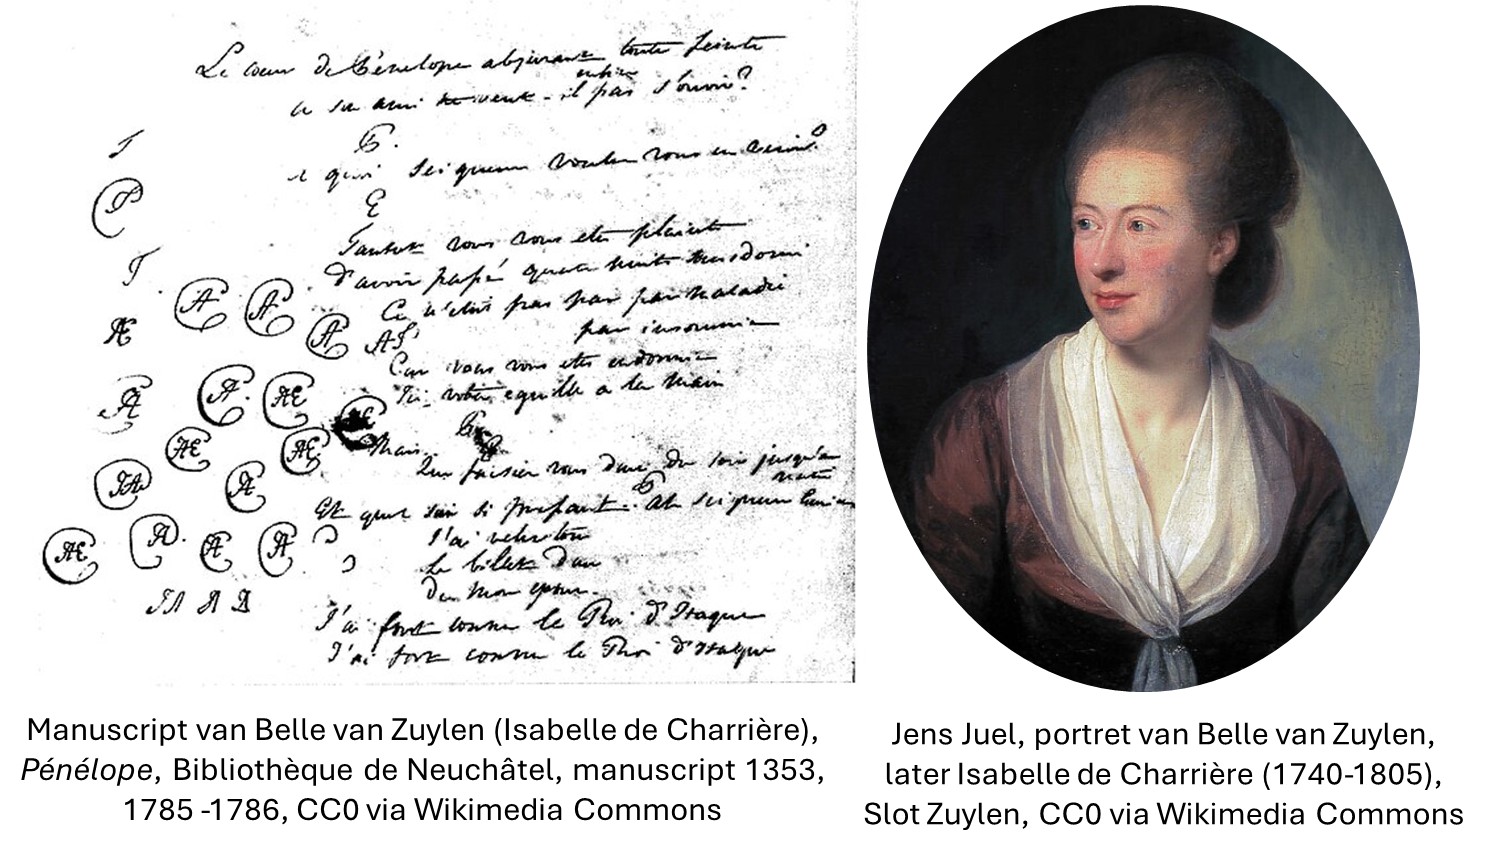 Le coeur de Pénélope abjurant toute feinte
enfin
a son ami ne veut-il pas s'ouvrir?
P.
et quoi Seigneur voulez vous en
E
Tantot vous vous etes plainte
D'avoir passé quatre nuits sans dormir
Ce n'etoit pas par par maladie
par insomnie
Car vous vous etes endormie
l'eguille a la main
Mais
Que faisiez vous donc du soir jusqu'au
matin
Et quel soin si pressant. Ah Seigneur
J'ai
Le billet
De mon epoux.
J'ai fort connu le Roi d'Itaque
J'ai fort connu le Roi d'Itaque
T
P
T
A A
Æ A
A A Æ
Æ Æ
A
Æ A A A
Manuscript van Belle van Zuylen (Isabelle de Charrière),
Pénélope, Bibliothèque de Neuchâtel, manuscript 1353,
1785 -1786, CC0 via Wikimedia Commons
Jens Juel, portret van Belle van Zuylen,
later Isabelle de Charrière (1740-1805),
Slot Zuylen, CC0 via Wikimedia Commons